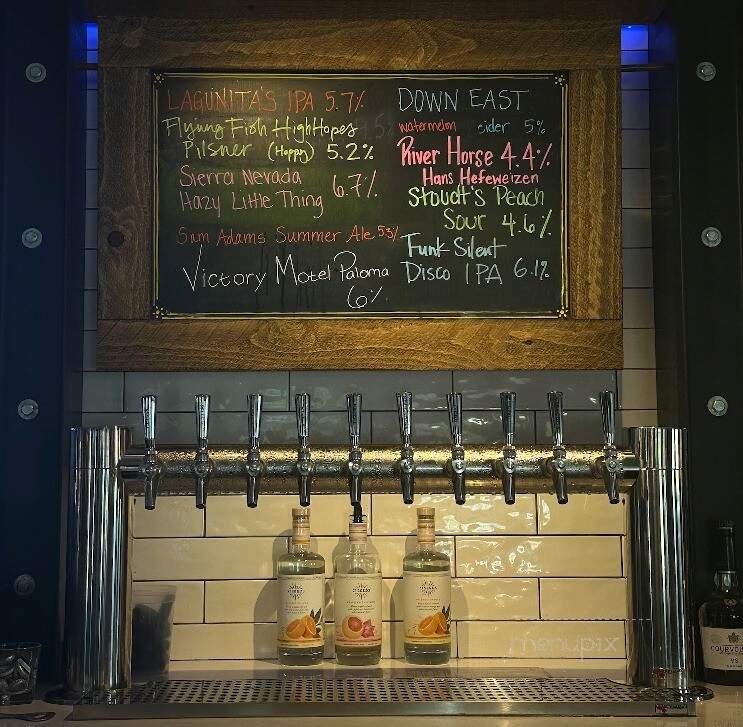 LAGUNITA'S IPA 5.7%
Flying Fish HighHopes
Pilsner (Hoppy) 5.2%
Sierra Nevada
Hazy Little Thing 6.7%
Sam Adams Summer Ale 5.3%
Victory Motel Paloma
6%
DOWN EAST
watermelon cider 5%
River Horse 4.4%
Hans Hefeweizen
Stoudt's Peach
Sour 4.6%
Funk Silent
Disco IPA 6.1%
menupix
COURVOISIER
VS